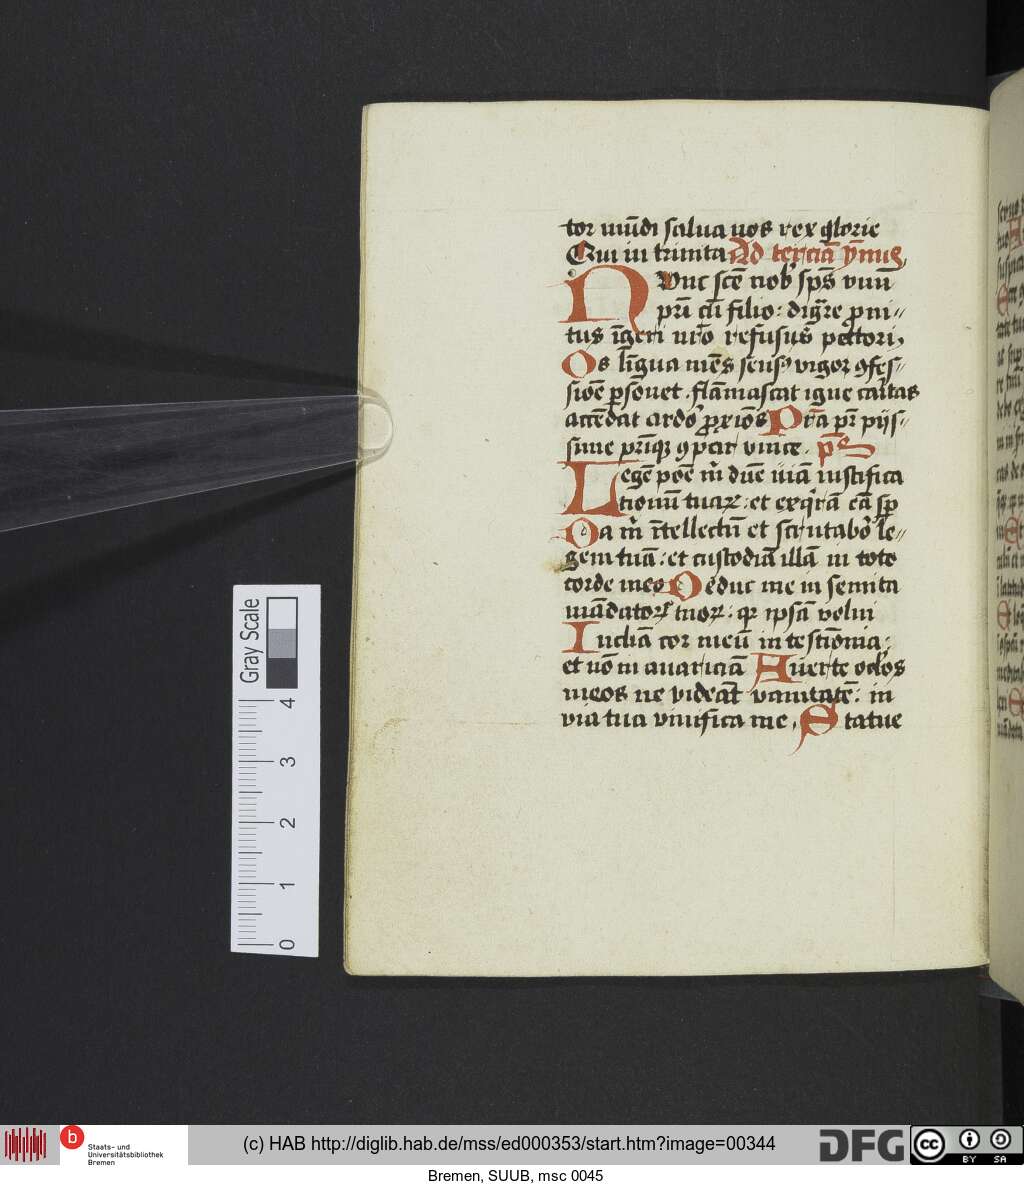 tor mūdi salua uos rex glorie
Qui in trinita Ad terciā ymnus
Nunc scē nob' sps̄ vnū
prī cū filio : dig̃re pro ni//
tus īgeri nr̄o refusus pectori,
Os līgua mēs sensꝰ vigor ꝯfes//
sioē psonet . flāmascat igne caritas
accēdat ardor proxīos Prā pr̄ pijs//
sime prīqꝫ ꝯpar vnice . ps̄
Legē poē m̄ dn̄e viā iustifica
tionū tuaꝝ : et exqrā eā sp
Da m̄ ītellectū et scrutabor le//
gem tuā : et custodiā illā in toto
corde meo Deduc me in semita
mādatorꝝ tuoꝝ : qr ipsā volui
Inclīa cor meū in testīonia :
et nō in auariciā Auerte oclos
meos ne videāt vanitatē : in
via tua viuifica me . Statue
Gray Scale
4
3
2
1
0
b
Staats- und
Universitätsbibliothek
Bremen
(c) HAB http://diglib.hab.de/mss/ed000353/start.htm?image=00344
DFG
cc
BY SA
Bremen, SUUB, msc 0045